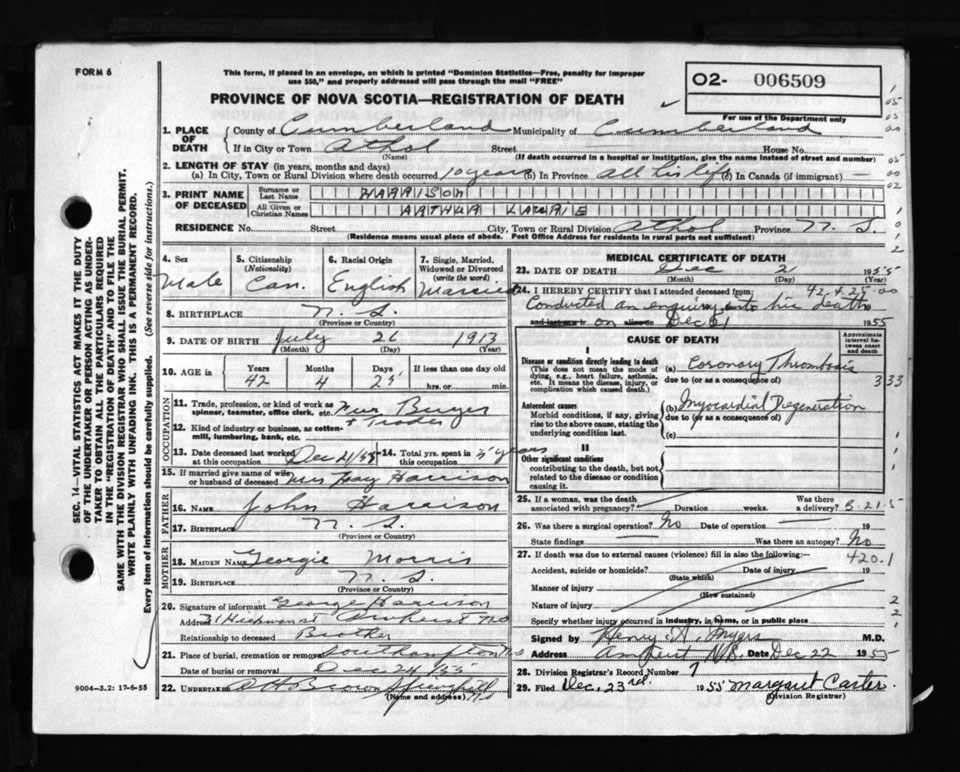 FORM 6
This form, if placed in an envelope, on which is printed "Dominion Statistics—Free, penalty for improper
use $50," and properly addressed will pass through the mail "FREE"
02- 006509
For use of the Department only
PROVINCE OF NOVA SCOTIA—REGISTRATION OF DEATH
1. PLACE OF DEATH County of Cumberland Municipality of Cumberland
If in City or Town Athol Street House No.
(Name) (If death occurred in a hospital or institution, give the name instead of street and number)
2. LENGTH OF STAY (in years, months and days)
(a) In City, Town or Rural Division where death occurred 10 years (b) In Province all his life (c) In Canada (if immigrant) —
3. PRINT NAME OF DECEASED Surname or Last Name HARRISON
All Given or Christian Names ARTHUR LAURIE
RESIDENCE No. Street City, Town or Rural Division Athol Province N. S.
(Residence means usual place of abode. Post Office Address for residents in rural parts not sufficient)
4. Sex Male
5. Citizenship (Nationality) Can.
6. Racial Origin English
7. Single, Married, Widowed or Divorced (write the word) Married
8. BIRTHPLACE N. S.
(Province or Country)
9. DATE OF BIRTH July 26 1913
(Month) (Day) (Year)
10. AGE in Years Months Days If less than one day
42 4 25 hrs. or min.
OCCUPATION
11. Trade, profession, or kind of work as spinner, teamster, office clerk, etc. Buyer
+ Trader
12. Kind of industry or business, as cotton-mill, lumbering, bank, etc.
13. Date deceased last worked at this occupation Dec 21/55 14. Total yrs. spent in this occupation years
15. If married give name of wife or husband of deceased Mrs Fay Harrison
FATHER
16. NAME John Harrison
17. BIRTHPLACE N. S.
(Province or Country)
MOTHER
18. MAIDEN NAME Georgie Morris
19. BIRTHPLACE N. S.
(Province or Country)
20. Signature of informant George Harrison
Address Amherst NS
Relationship to deceased Brother
21. Place of burial, cremation or removal Southampton NS
Date of burial or removal Dec 24/55
22. Undertaker Brown Springhill NS
(Name and address)
MEDICAL CERTIFICATE OF DEATH
23. DATE OF DEATH Dec 21 1955
(Month) (Day) (Year)
24. I HEREBY CERTIFY that I attended deceased from: 42.4.25.00
Conducted an enquiry into his death
on Dec 21 1955
CAUSE OF DEATH
Approximate interval between onset and death
I
Disease or condition directly leading to death
(This does not mean the mode of dying, e.g., heart failure, asthenia, etc. It means the disease, injury, or complication which caused death.)
(a) Coronary Thrombosis
due to (or as a consequence of)
333
Antecedent causes
Morbid conditions, if any, giving rise to the above cause, stating the underlying condition last.
(b) Myocardial Degeneration
due to (or as a consequence of)
(c)
II
Other significant conditions
contributing to the death, but not related to the disease or condition causing it.
25. If a woman, was the death associated with pregnancy? Duration weeks. Was there a delivery?
26. Was there a surgical operation? No Date of operation 19
State findings Was there an autopsy? No
27. If death was due to external causes (violence) fill in also the following: 420.1
Accident, suicide or homicide? Date of injury 19
(State which)
Manner of injury
(How sustained)
Nature of injury
Specify whether injury occurred in industry, in home, or in public place
Signed by Henry A. Myers M.D.
Address Amherst N.S. Date Dec 22 1955
28. Division Registrar's Record Number 7
29. Filed Dec. 23rd. 1955 Margaret Carter
(Division Registrar)
SEC. 14—VITAL STATISTICS ACT MAKES IT THE DUTY
OF THE UNDERTAKER OR PERSON ACTING AS UNDER-
TAKER TO OBTAIN ALL THE PARTICULARS REQUIRED
IN THE "REGISTRATION OF DEATH" AND TO FILE THE
SAME WITH THE DIVISION REGISTRAR WHO SHALL ISSUE THE BURIAL PERMIT.
WRITE PLAINLY WITH UNFADING INK. THIS IS A PERMANENT RECORD.
Every item of information should be carefully supplied. (See reverse side for instructions.)
9004-3.2: 17-6-55